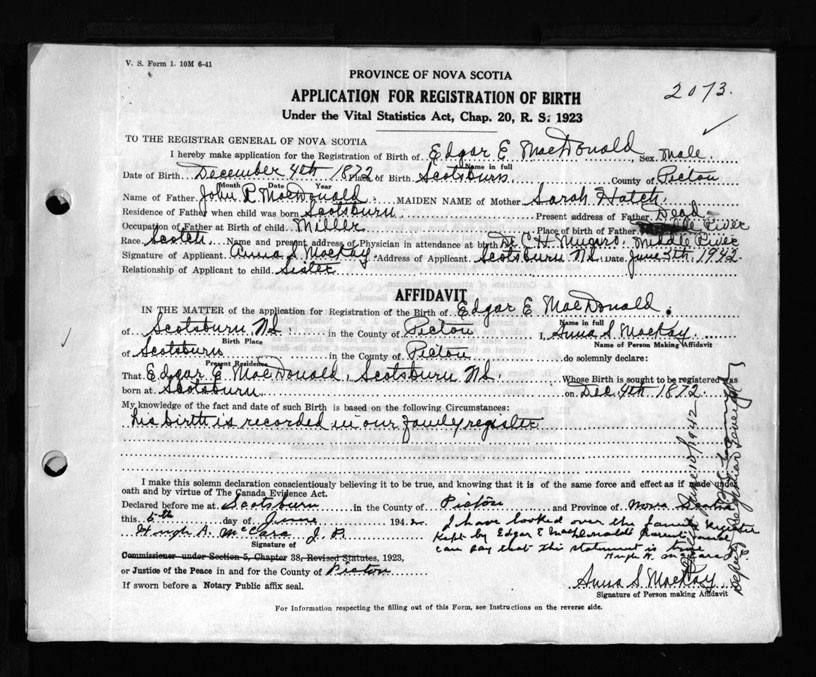 V. S. Form 1. 10M 6-41
PROVINCE OF NOVA SCOTIA
2073.
APPLICATION FOR REGISTRATION OF BIRTH
Under the Vital Statistics Act, Chap. 20, R. S. 1923
TO THE REGISTRAR GENERAL OF NOVA SCOTIA
I hereby make application for the Registration of Birth of Edgar E MacDonald, Sex Male.
Name in full
Date of Birth December 4th 1872 Place of Birth Scotsburn County of Pictou
Month Date Year
Name of Father John R MacDonald. MAIDEN NAME of Mother Sarah Hatch.
Residence of Father when child was born Scotsburn Present address of Father Dead
Occupation of Father at Birth of child Miller Place of birth of Father Middle River
Race Scotch. Name and present address of Physician in attendance at birth Dr. C H. Munro. Middle River
Signature of Applicant Anna S. MacKay. Address of Applicant Scotsburn N.S. Date June 5th, 1942.
Relationship of Applicant to child Sister
AFFIDAVIT
IN THE MATTER of the application for Registration of the Birth of Edgar E MacDonald.
Name in full
of Scotsburn N.S. in the County of Pictou I, Anna S. MacKay.
Birth Place Name of Person Making Affidavit
of Scotsburn in the County of Pictou do solemnly declare:
Present Residence
That Edgar E MacDonald, Scotsburn N.S. Whose Birth is sought to be registered was
born at Scotsburn on Dec. 4th 1872.
My knowledge of the fact and date of such Birth is based on the following Circumstances:
his birth is recorded in our family register
I make this solemn declaration conscientiously believing it to be true, and knowing that it is of the same force and effect as if made under
oath and by virtue of The Canada Evidence Act.
Declared before me at Scotsburn in the County of Pictou and Province of Nova Scotia
this 5th day of June 1942
I have looked over the family register
Hugh A. McClara J. P.
Kept by Edgar E MacDonald's Parents and
Signature of
can say that this statement is true
Commissioner under Section 5, Chapter 38, Revised Statutes, 1923,
or Justice of the Peace in and for the County of Pictou
Anna S. MacKay
If sworn before a Notary Public affix seal.
Signature of Person making Affidavit
For Information respecting the filling out of this Form, see Instructions on the reverse side.
June 10/1942
Deputy Registrar General